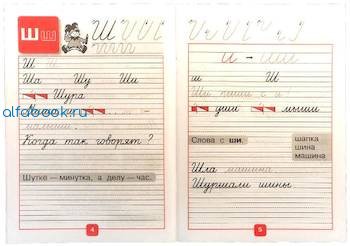 Шш
Ш
Ш Ш
Ша Шу Ши
Шура.
alfabook.ru
Когда так говорят?
Шутке — минутка, а делу — час.
4
и – ш
ш Ш
Ши пиши с и.
уши мыши
Слова с ши.
шапка
шина
машина
Шла машина
Шуршали шины.
5